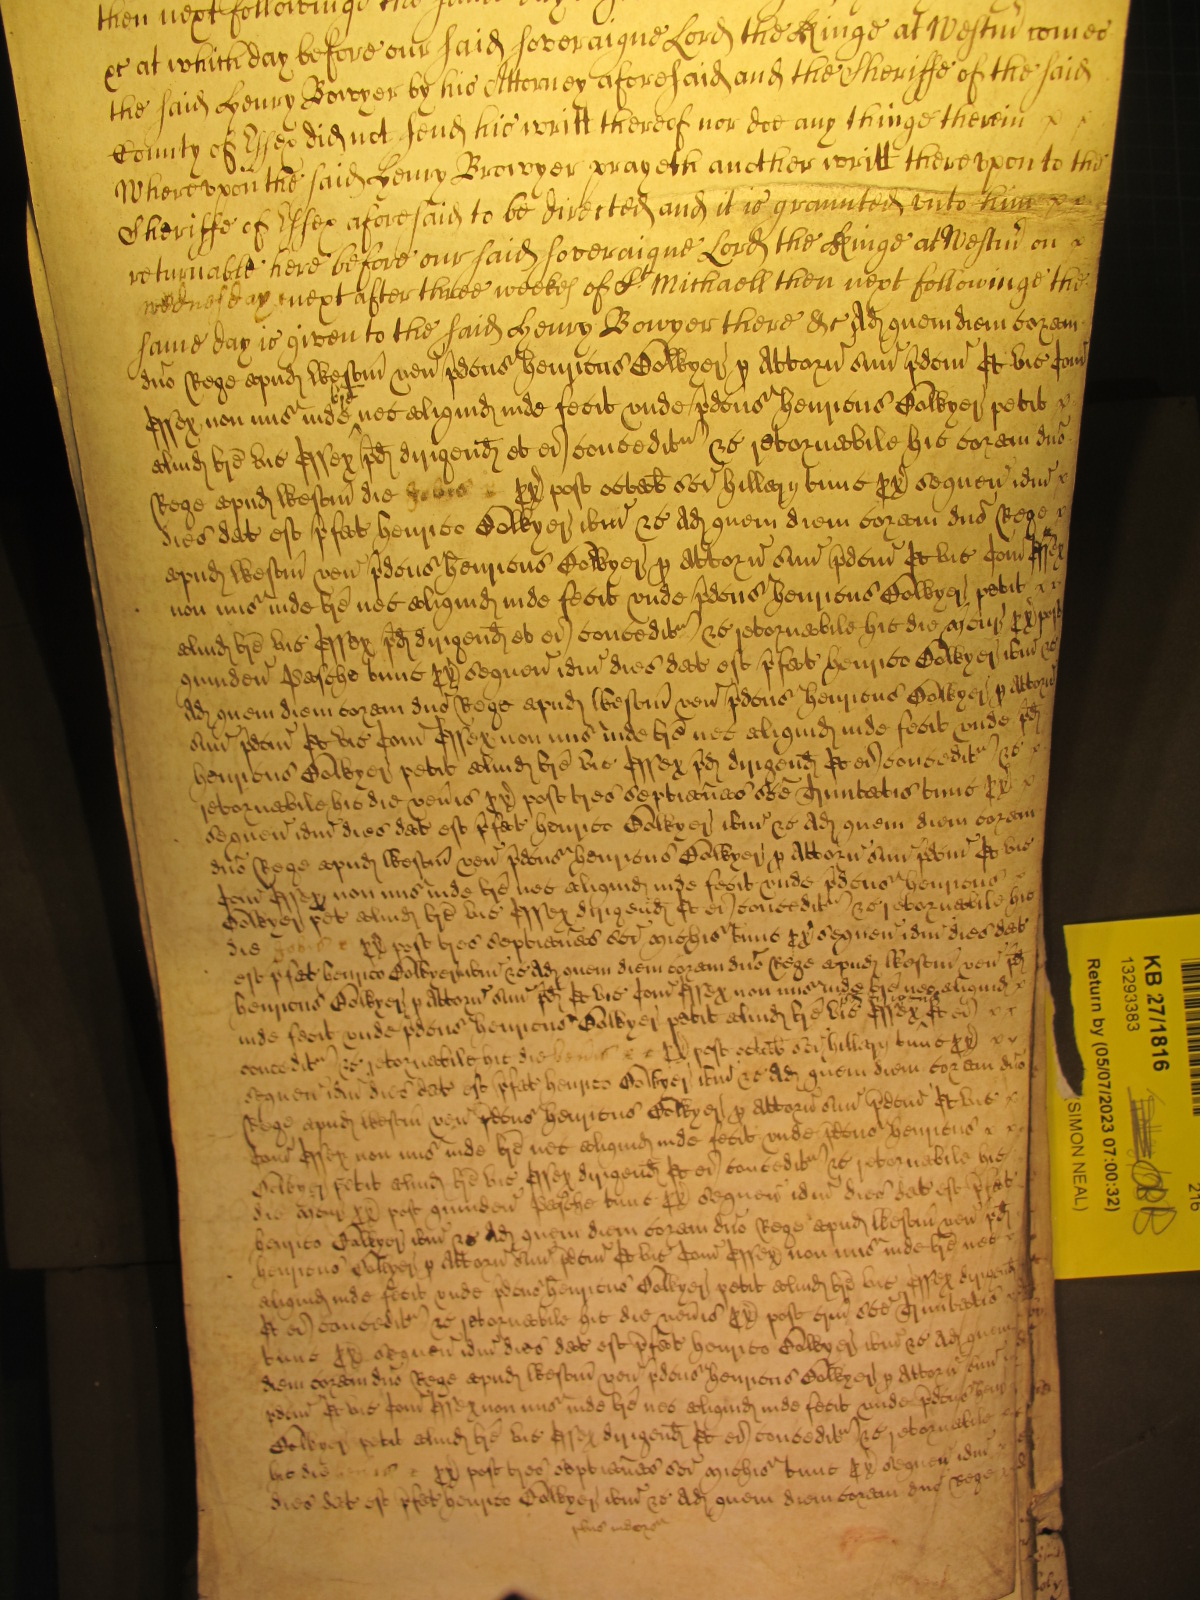 then next followinge the same day
&c at which day before our said soveraigne Lord the Kinge at Westm̃ comes
the said Henry Bowyer by his Attorney aforesaid and the Sheriffe of the said
County of Essex did not send his writt thereof nor doe any thinge therein
Whereupon the said Henry Browyer prayeth another writt thereupon to the
Sheriffe of Essex aforesaid to be directed and it is graunted unto him
returnable here before our said soveraigne Lord the Kinge at Westm̃ on
wednesday next after three weekes of St Michaell then next followinge the
same day is given to the said Henry Bowyer there &c Ad quem diem coram
dño Rege apud Westm̃ veñ p̃dcus Henricus Bowyer p Attorñ suũ p̃dcũ Et vic Com̃
Essex non mis̃ inde br̃e nec aliquid inde fecit unde p̃dcus Henricus Bowyer petit
aliud br̃e vic Essex p̃d dirigend̃ et ei conceditᵘʳ &c retornabile hic coram dño
Rege apud Westm̃ die px̃ post octab̃ sc̃i Hillarij tunc px̃ sequeñ idm̃
dies dat est p̃fat Henrico Bowyer ibm̃ &c Ad quem diem coram dño Rege
apud Westm̃ veñ p̃dcus Henricus Bowyer p Attorñ suũ p̃dcũ Et vic Com̃ Essex
non mis̃ inde br̃e nec aliquid inde fecit unde p̃dcus Henricus Bowyer petit
aliud br̃e vic Essex p̃d dirigend̃ et ei conceditᵘʳ &c retornabile hic die px̃ post
quinden̄ Pasche tunc px̃ sequeñ idm̃ dies dat est p̃fat Henrico Bowyer ibm̃ &c
Ad quem diem coram dño Rege apud Westm̃ veñ p̃dcus Henricus Bowyer p Attorñ
suũ p̃dcũ Et vic Com̃ Essex non mis̃ inde br̃e nec aliquid inde fecit unde p̃d
Henricus Bowyer petit aliud br̃e vic Essex p̃d dirigend̃ Et ei conceditᵘʳ &c
retornabile hic die ven̄is px̃ post tres septiãnas sc̃e Trinitatis tunc px̃
sequeñ idm̃ dies dat est p̃fat Henrico Bowyer ibm̃ &c Ad quem diem coram
dño Rege apud Westm̃ veñ p̃dcus Henricus Bowyer p Attorñ suũ p̃dcũ Et vic
Com̃ Essex non mis̃ inde br̃e nec aliquid inde fecit unde p̃dcus Henricus
Bowyer pet aliud br̃e vic Essex dirigend̃ Et ei conceditᵘʳ &c retornabile hic
die px̃ post tres septiãnas sc̃i Michis̃ tunc px̃ sequeñ idm̃ dies dat
est p̃fat Henrico Bowyer ibm̃ &c Ad quem diem coram dño Rege apud Westm̃ veñ p̃d
Henricus Bowyer p Attorñ suũ p̃d Et vic Com̃ Essex non mis̃ inde br̃e nec aliquid
inde fecit unde p̃dcus Henricus Bowyer petit aliud br̃e vic Essex Et ei
conceditᵘʳ &c retornabile hic die px̃ post octab̃ sc̃i Hillarij tunc px̃
sequeñ idm̃ dies dat est p̃fat Henrico Bowyer ibm̃ &c Ad quem diem coram dño
Rege apud Westm̃ veñ p̃dcus Henricus Bowyer p Attorñ suũ p̃dcũ Et vic
Com̃ Essex non mis̃ inde br̃e nec aliquid inde fecit unde p̃dcus Henricus
Bowyer petit aliud br̃e vic Essex dirigend̃ Et ei conceditᵘʳ &c retornabile hic
die px̃ post quinden̄ Pasche tunc px̃ sequeñ idm̃ dies dat est p̃fat
Henrico Bowyer ibm̃ &c Ad quem diem coram dño Rege apud Westm̃ veñ p̃d
Henricus Bowyer p Attorñ suũ p̃dcũ Et vic Com̃ Essex non mis̃ inde br̃e nec
aliquid inde fecit unde p̃dcus Henricus Bowyer petit aliud br̃e vic Essex dirigend̃
Et ei conceditᵘʳ &c retornabile hic die ven̄is px̃ post sc̃e Trinitatis
tunc px̃ sequeñ idm̃ dies dat est p̃fat Henrico Bowyer ibm̃ &c Ad quem
diem coram dño Rege apud Westm̃ veñ p̃dcus Henricus Bowyer p Attorñ suũ
p̃dcũ Et vic Com̃ Essex non mis̃ inde br̃e nec aliquid inde fecit unde p̃dcus Henr̃
Bowyer petit aliud br̃e vic Essex dirigend̃ Et ei conceditᵘʳ &c retornabile
hic die px̃ post tres septiãnas sc̃i Michis̃ tunc px̃ sequeñ idm̃
dies dat est p̃fat Henrico Bowyer ibm̃ &c Ad quem diem coram dño Rege
plus indorsᵃ
216
KB 27/1816
13293383
Return by (05/07/2023 07:00:32)
SIMON NEAL)